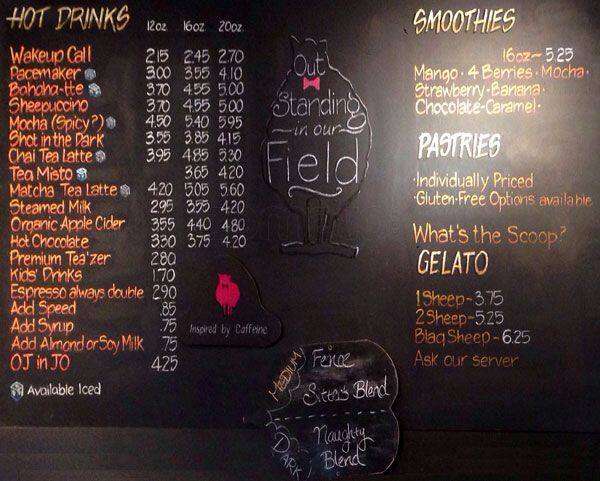 HOT DRINKS 12oz. 16oz. 20oz.
Wakeup Call 2.15 2.45 2.70
Pacemaker 3.00 3.55 4.10
Bahaha-tte 3.70 4.55 5.00
Sheepuccino 3.70 4.55 5.00
Mocha (Spicy?) 4.50 5.40 5.95
Shot in the Dark 3.55 3.85 4.15
Chai Tea Latte 3.95 4.85 5.30
Tea Misto 3.65 4.20
Matcha Tea Latte 4.20 5.05 5.60
Steamed Milk 2.95 3.55 4.20
Organic Apple Cider 3.55 4.40 4.80
Hot Chocolate 3.30 3.75 4.20
Premium Tea'zer 2.80
Kids' Drinks 1.70
Espresso always double 2.90
Add Speed .85
Add Syrup .75
Add Almond or Soy Milk .75
OJ in JO 4.25
Available Iced
Out
Standing
in our
Field
Inspired by Caffeine
MEDIUM
Fence
Sitta's Blend
Naughty
Blend
SMOOTHIES
16oz~ 5.25
Mango · 4 Berries · Mocha ·
Strawberry · Banana ·
Chocolate-Caramel ·
PASTRIES
·Individually Priced
·Gluten-Free Options available
What's the Scoop?
GELATO
1 Sheep - 3.75
2 Sheep - 5.25
Blaq Sheep - 6.25
Ask our server